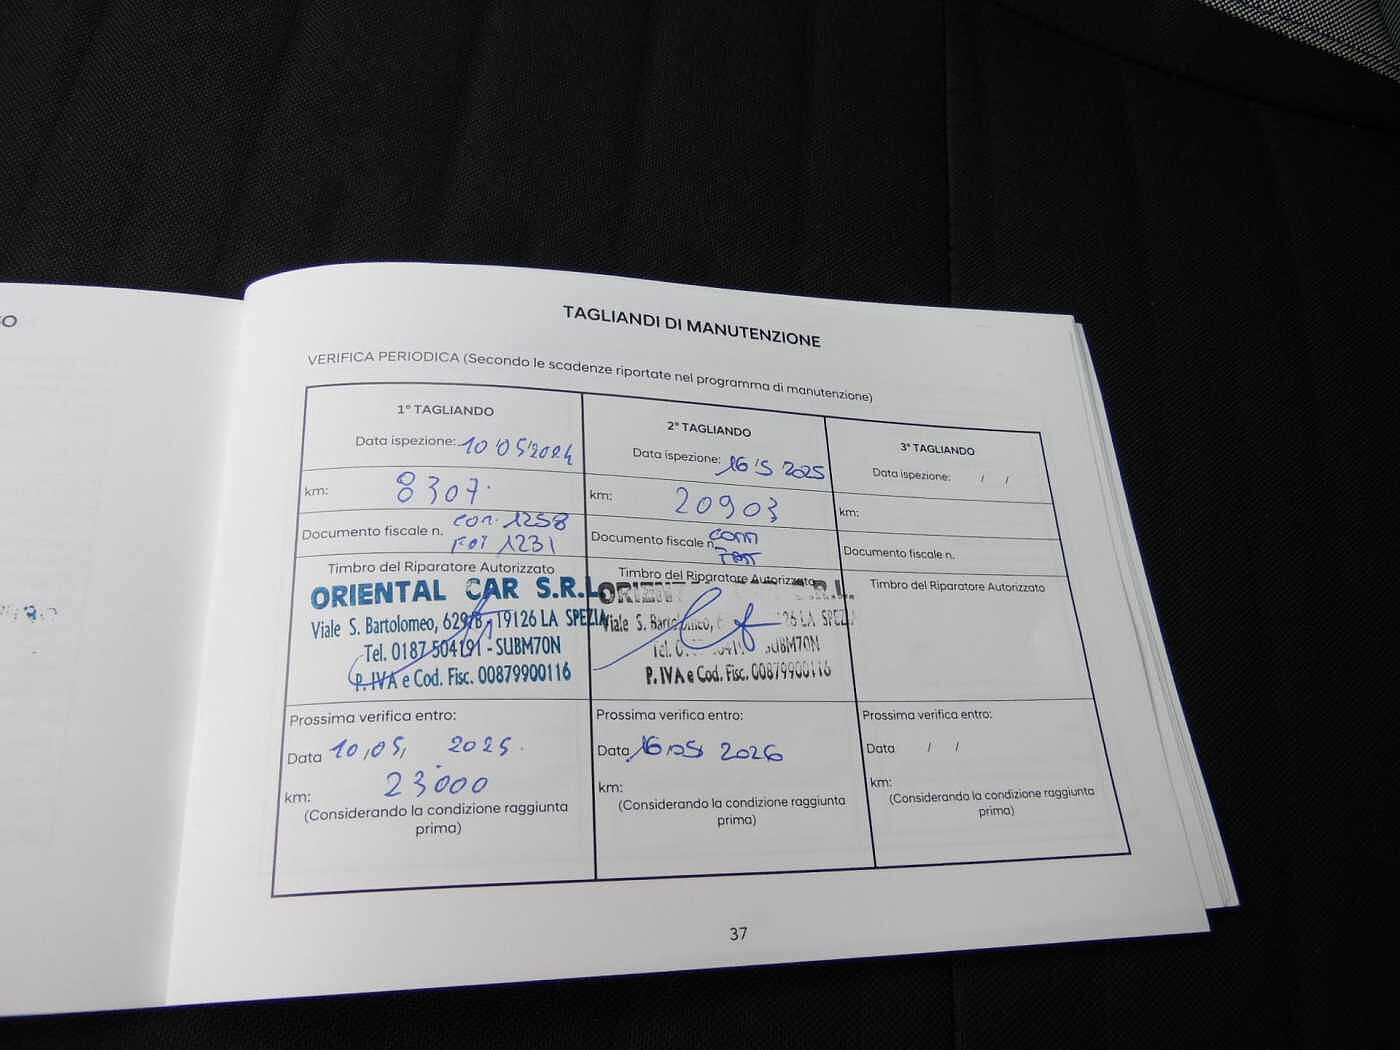 TAGLIANDI DI MANUTENZIONE
VERIFICA PERIODICA (Secondo le scadenze riportate nel programma di manutenzione)
1° TAGLIANDO
Data ispezione: 10 05 2024
km: 8307
Documento fiscale n. con. 1258
1231
Timbro del Riparatore Autorizzato
ORIENTAL CAR S.R.L.
Viale S. Bartolomeo, 629/B - 19126 LA SPEZIA
Tel. 0187 504191 - SUBM70N
P. IVA e Cod. Fisc. 00879900116
Prossima verifica entro:
Data 10,05, 2025.
km: 23000
(Considerando la condizione raggiunta
prima)
2° TAGLIANDO
Data ispezione: 16 5 2025
km: 20903
Documento fiscale n.
Timbro del Riparatore Autorizzato
S.R.L.
Viale S. 26 LA SPEZIA
Tel. SUBM70N
P. IVA e Cod. Fisc. 00879900116
Prossima verifica entro:
Data 16,05 2026
km:
(Considerando la condizione raggiunta
prima)
3° TAGLIANDO
Data ispezione: / /
km:
Documento fiscale n.
Timbro del Riparatore Autorizzato
Prossima verifica entro:
Data / /
km:
(Considerando la condizione raggiunta
prima)
37